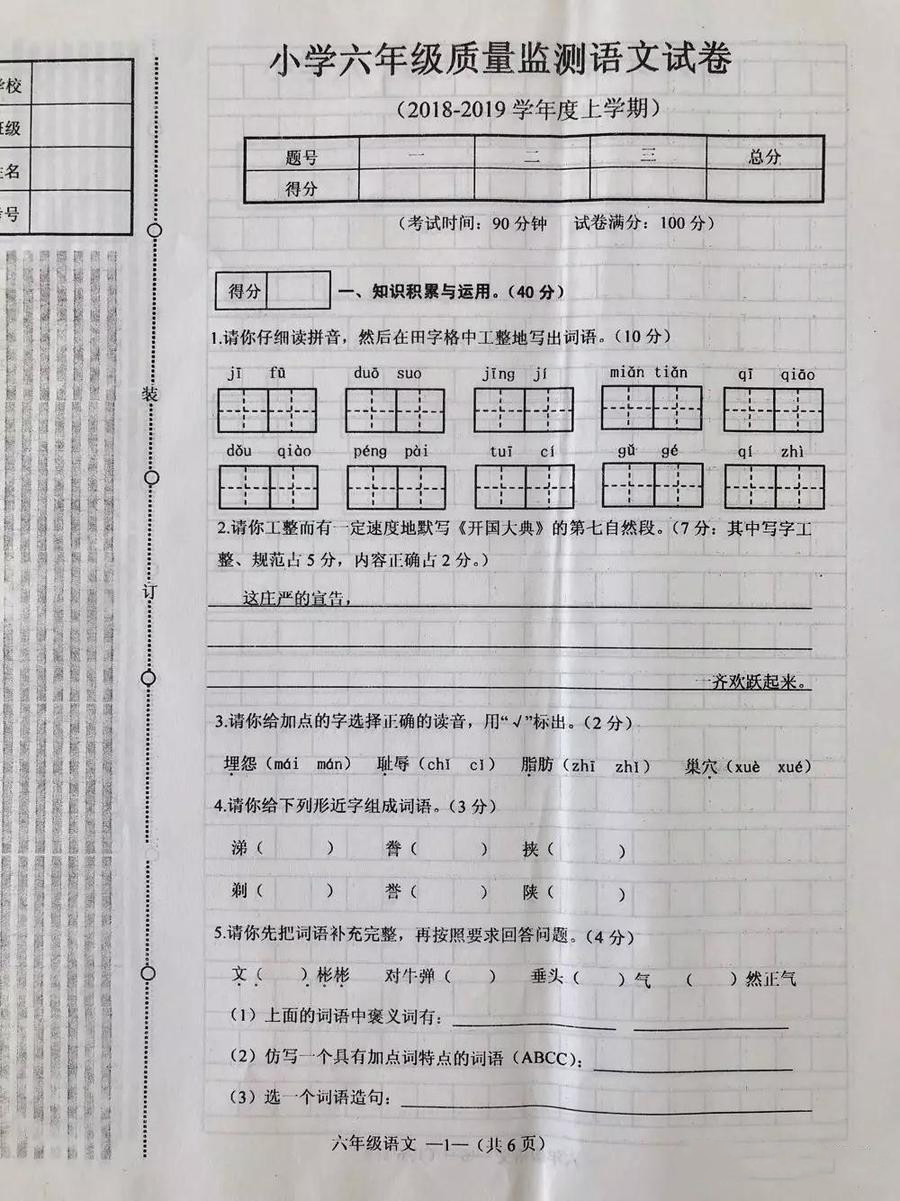 小学六年级质量监测语文试卷
（2018-2019 学年度上学期）
题号 一 二 三 总分
得分
（考试时间：90 分钟 试卷满分：100 分）
得分 一、知识积累与运用。（40 分）
1.请你仔细读拼音，然后在田字格中工整地写出词语。（10 分）
jī fū duō suo jīng jí miǎn tiǎn qī qiāo
dǒu qiào péng pài tuī cí gǔ gé qí zhì
2.请你工整而有一定速度地默写《开国大典》的第七自然段。（7 分：其中写字工
整、规范占 5 分，内容正确占 2 分。）
这庄严的宣告，
一齐欢跃起来。
3.请你给加点的字选择正确的读音，用“√”标出。（2 分）
埋怨（mái mán） 耻辱（chǐ cǐ） 脂肪（zhī zhǐ） 巢穴（xuè xué）
4.请你给下列形近字组成词语。（3 分）
涕（ ） 誊（ ） 挟（ ）
剃（ ） 誉（ ） 陕（ ）
5.请你先把词语补充完整，再按照要求回答问题。（4 分）
文（ ）彬彬 对牛弹（ ） 垂头（ ）气 （ ）然正气
（1）上面的词语中褒义词有：
（2）仿写一个具有加点词特点的词语（ABCC）：
（3）选一个词语造句：
六年级语文 —1—（共 6 页）
学校
班级
姓名
考号
装
订